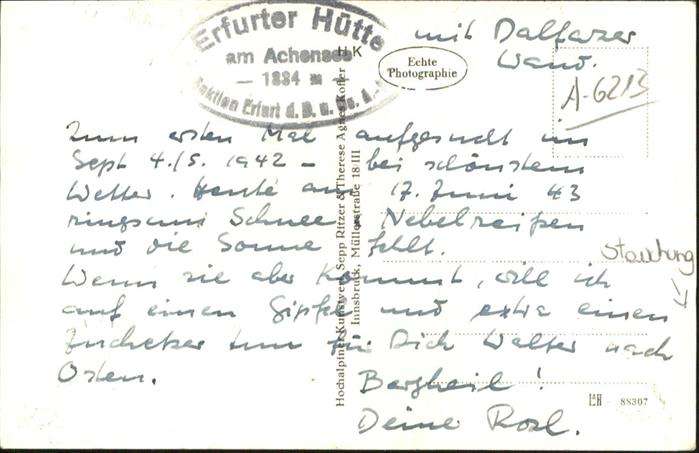 Erfurter Hütte
am Achensee
— 1834 m —
Sektion Erfurt d. D. u. Ö. A.-V.
HK
Echte
Photographie
mit Dalfazer
Wand.
A-6213
Zum ersten Mal aufgesucht im
Sept 4./5. 1942 - bei schönstem
Wetter. Heute am 17. Juni 43
ringsum Schnee, Nebelreißen
und die Sonne fehlt.
Wenn sie aber kommt, will ich
auf einen Gipfel und extra einen
Juchetzer tun für Dich Walter nach
Osten.
Bergheil!
Deine Rosl.
Stauchung
Hochalpiner Kunstverlag Sepp Ritzer & Therese Agnes Kofler
Innsbruck, Müllerstraße 18/III
88307